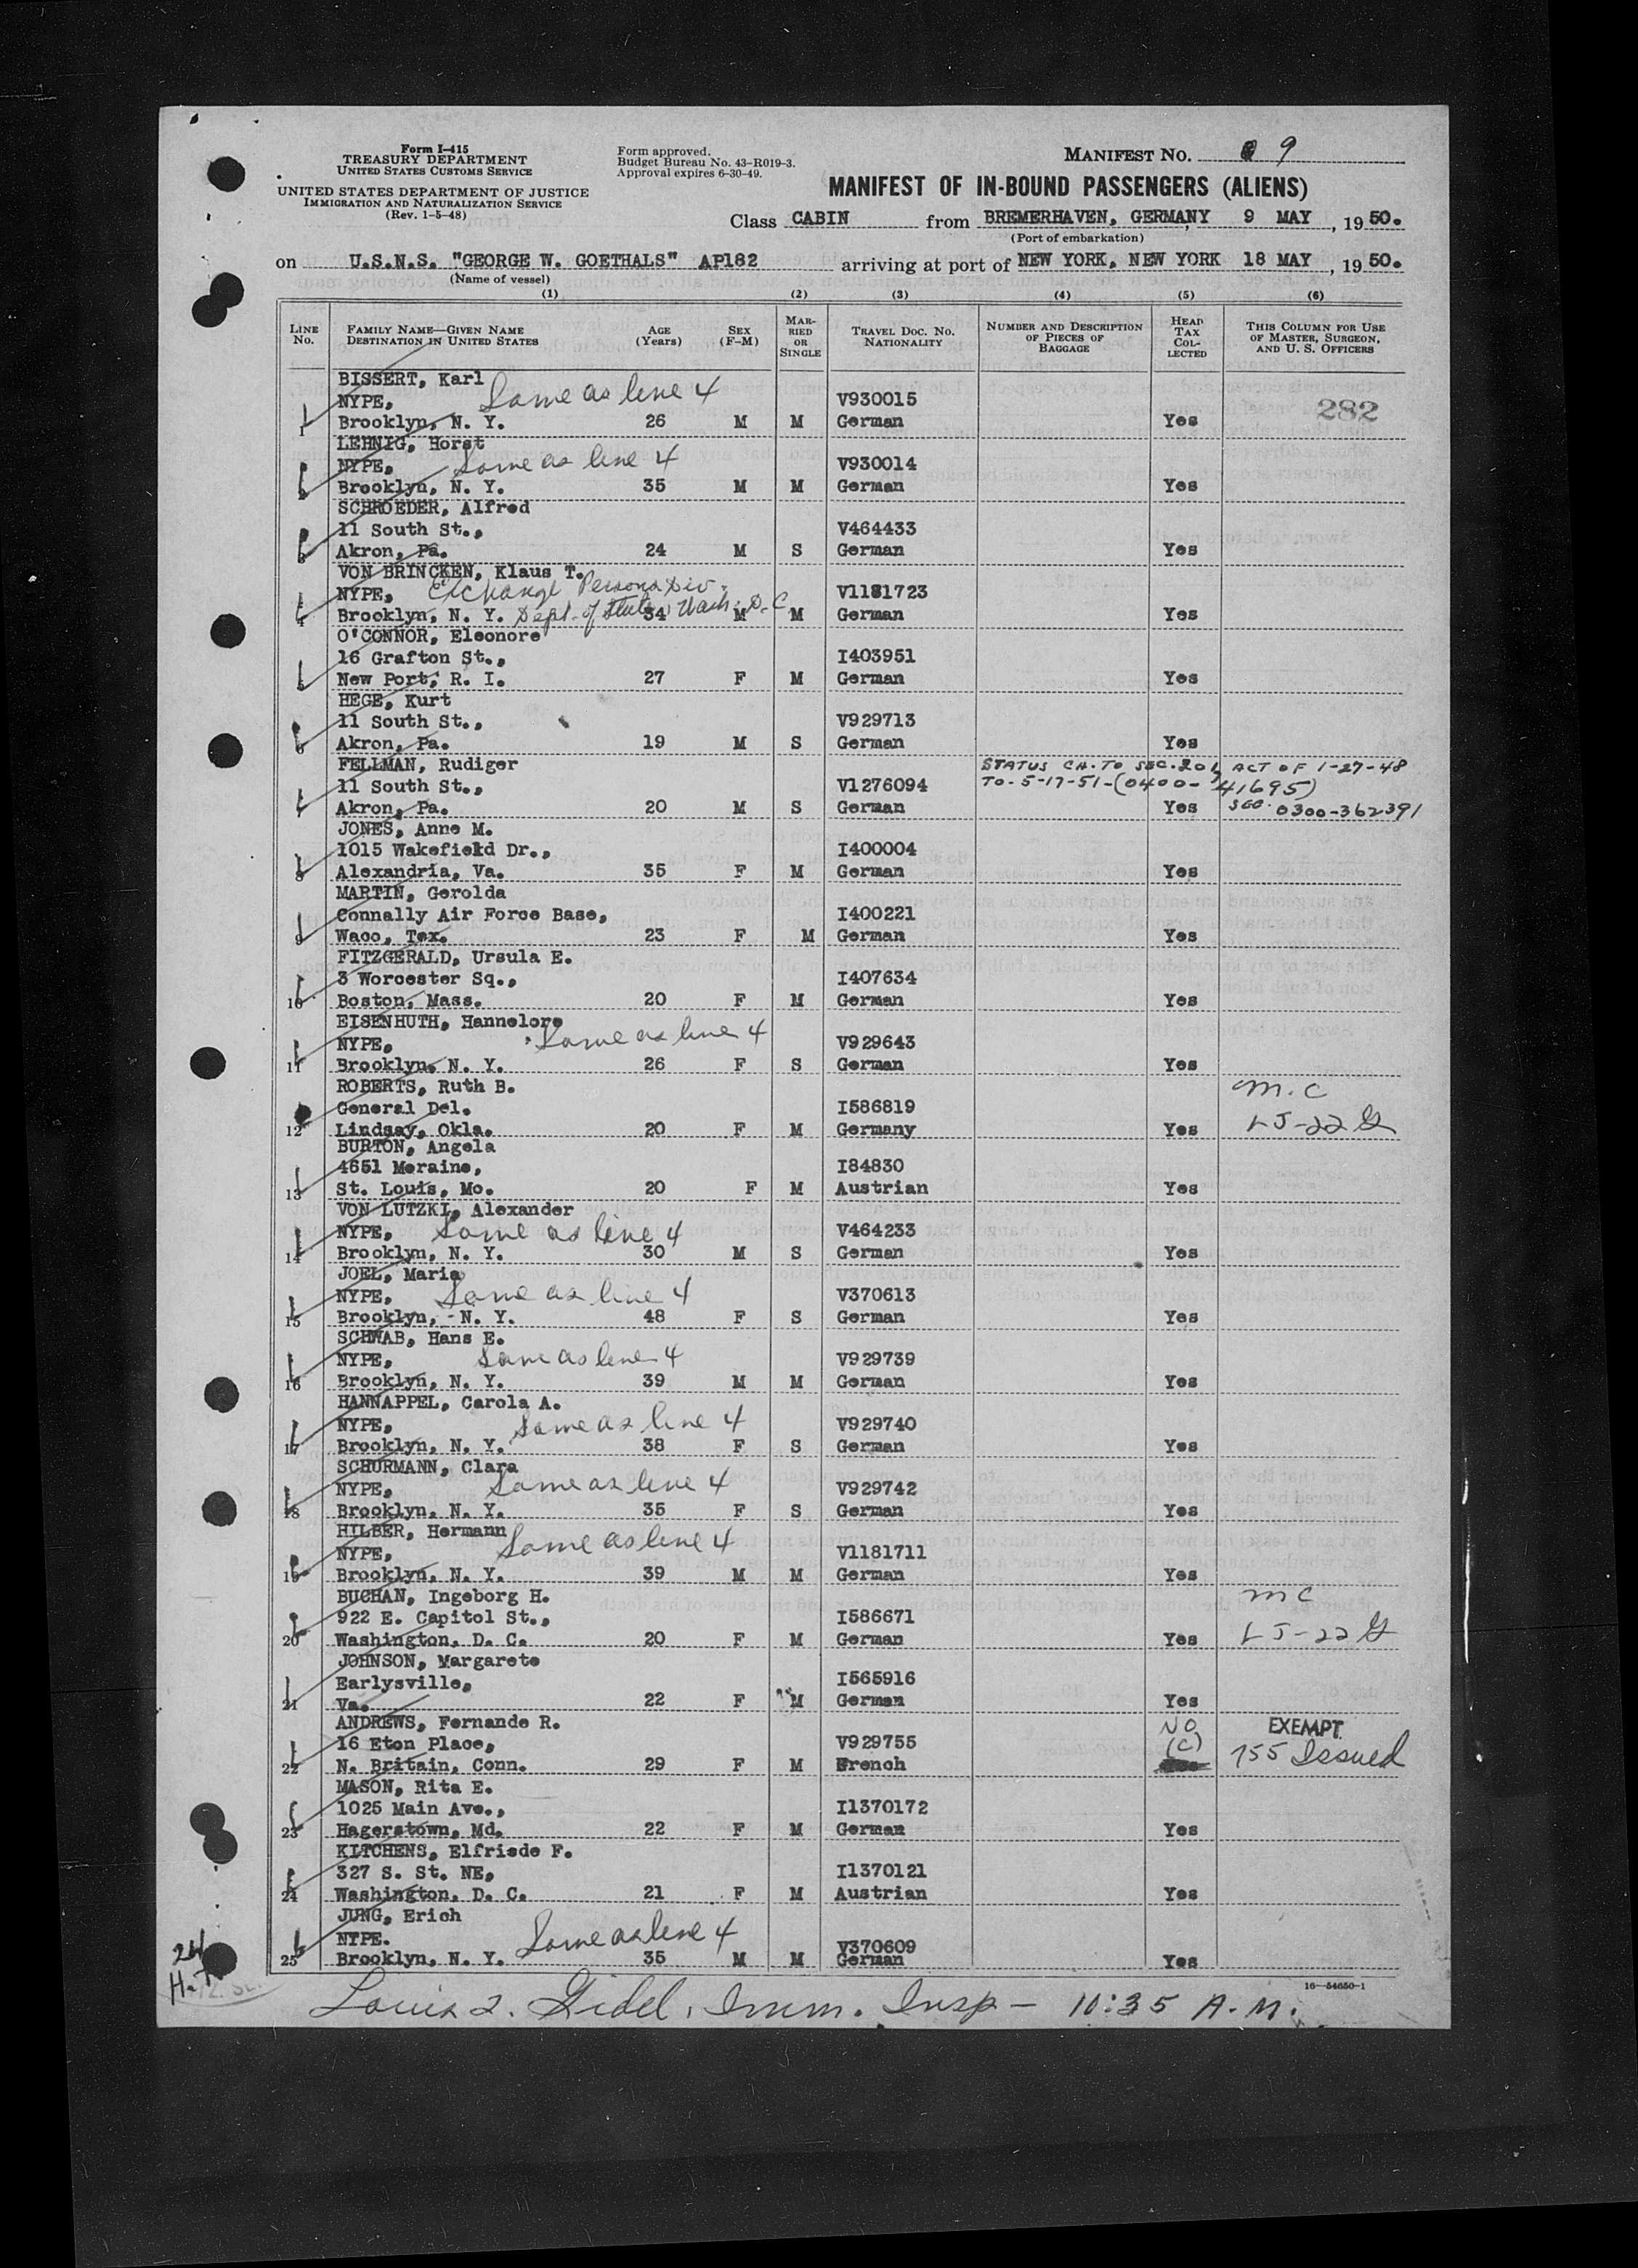 Form I-415
TREASURY DEPARTMENT
UNITED STATES CUSTOMS SERVICE
UNITED STATES DEPARTMENT OF JUSTICE
IMMIGRATION AND NATURALIZATION SERVICE
(Rev. 1-5-48)
Form approved.
Budget Bureau No. 43-R019-3.
Approval expires 6-30-49.
MANIFEST NO. 9
MANIFEST OF IN-BOUND PASSENGERS (ALIENS)
Class CABIN from BREMERHAVEN, GERMANY, 9 MAY, 1950.
(Port of embarkation)
on U.S.N.S. "GEORGE W. GOETHALS" AP182 arriving at port of NEW YORK, NEW YORK 18 MAY, 1950.
(Name of vessel)
(1) (2) (3) (4) (5) (6)
LINE NO. FAMILY NAME—GIVEN NAME DESTINATION IN UNITED STATES AGE (Years) SEX (F-M) MARRIED OR SINGLE TRAVEL DOC. NO. NATIONALITY NUMBER AND DESCRIPTION OF PIECES OF BAGGAGE HEAD TAX COLLECTED THIS COLUMN FOR USE OF MASTER, SURGEON, AND U. S. OFFICERS
BISSERT, Karl
NYPE, Same as line 4 V930015 282
1 Brooklyn, N. Y. 26 M M German Yes
LEHNIG, Horst
NYPE, Same as line 4 V930014
2 Brooklyn, N. Y. 35 M M German Yes
SCHROEDER, Alfred
11 South St., V464433
3 Akron, Pa. 24 M S German Yes
VON BRINCKEN, Klaus T.
NYPE, Exchange Persons Div. V1181723
4 Brooklyn, N. Y. Dept. of State, Wash. D.C 34 M M German Yes
O'CONNOR, Eleonore
16 Grafton St., I403951
5 New Port, R. I. 27 F M German Yes
HEGE, Kurt
11 South St., V929713
6 Akron, Pa. 19 M S German Yes
FELLMAN, Rudiger STATUS CH. TO SEC. 201, ACT OF 1-27-48
11 South St., V1276094 TO-5-17-51-(0400-41695)
7 Akron, Pa. 20 M S German Yes see 0300-362391
JONES, Anne M.
1015 Wakefield Dr., I400004
8 Alexandria, Va. 35 F M German Yes
MARTIN, Gerolda
Connally Air Force Base, I400221
9 Waco, Tex. 23 F M German Yes
FITZGERALD, Ursula E.
3 Worcester Sq., I407634
10 Boston, Mass. 20 F M German Yes
EISENHUTH, Hannelore
NYPE, Same as line 4 V929643
11 Brooklyn, N. Y. 26 F S German Yes
ROBERTS, Ruth B. M.C
General Del. I586819
12 Lindsay, Okla. 20 F M Germany Yes LJ-22
BURTON, Angela
4651 Meraine, I84830
13 St. Louis, Mo. 20 F M Austrian Yes
VON LUTZKI, Alexander
NYPE, Same as line 4 V464233
14 Brooklyn, N. Y. 30 M S German Yes
JOEL, Maria
NYPE, Same as line 4 V370613
15 Brooklyn, - N. Y. 48 F S German Yes
SCHWAB, Hans E.
NYPE, Same as line 4 V929739
16 Brooklyn, N. Y. 39 M M German Yes
HANNAPPEL, Carola A.
NYPE, Same as line 4 V929740
17 Brooklyn, N. Y. 38 F S German Yes
SCHURMANN, Clara
NYPE, Same as line 4 V929742
18 Brooklyn, N. Y. 35 F S German Yes
HILBER, Hermann
NYPE, Same as line 4 V1181711
19 Brooklyn, N. Y. 39 M M German Yes
BUCHAN, Ingeborg H. MC
922 E. Capitol St., I586671
20 Washington, D. C. 20 F M German Yes LJ-22
JOHNSON, Margarete
Earlysville, I565916
21 Va. 22 F M German Yes
ANDREWS, Fernande R. NO EXEMPT
16 Eton Place, V929755 (C) 755 Issued
22 N. Britain, Conn. 29 F M French
MASON, Rita E.
1025 Main Ave., I1370172
23 Hagerstown, Md. 22 F M German Yes
KITCHENS, Elfriede F.
327 S. St. NE, I1370121
24 Washington, D. C. 21 F M Austrian Yes
JUNG, Erich
NYPE. Same as line 4 V370609
25 Brooklyn, N. Y. 35 M M German Yes
24
H.T.
16—54650-1
Louis Gidel, Imm. Insp - 10:35 A.M.